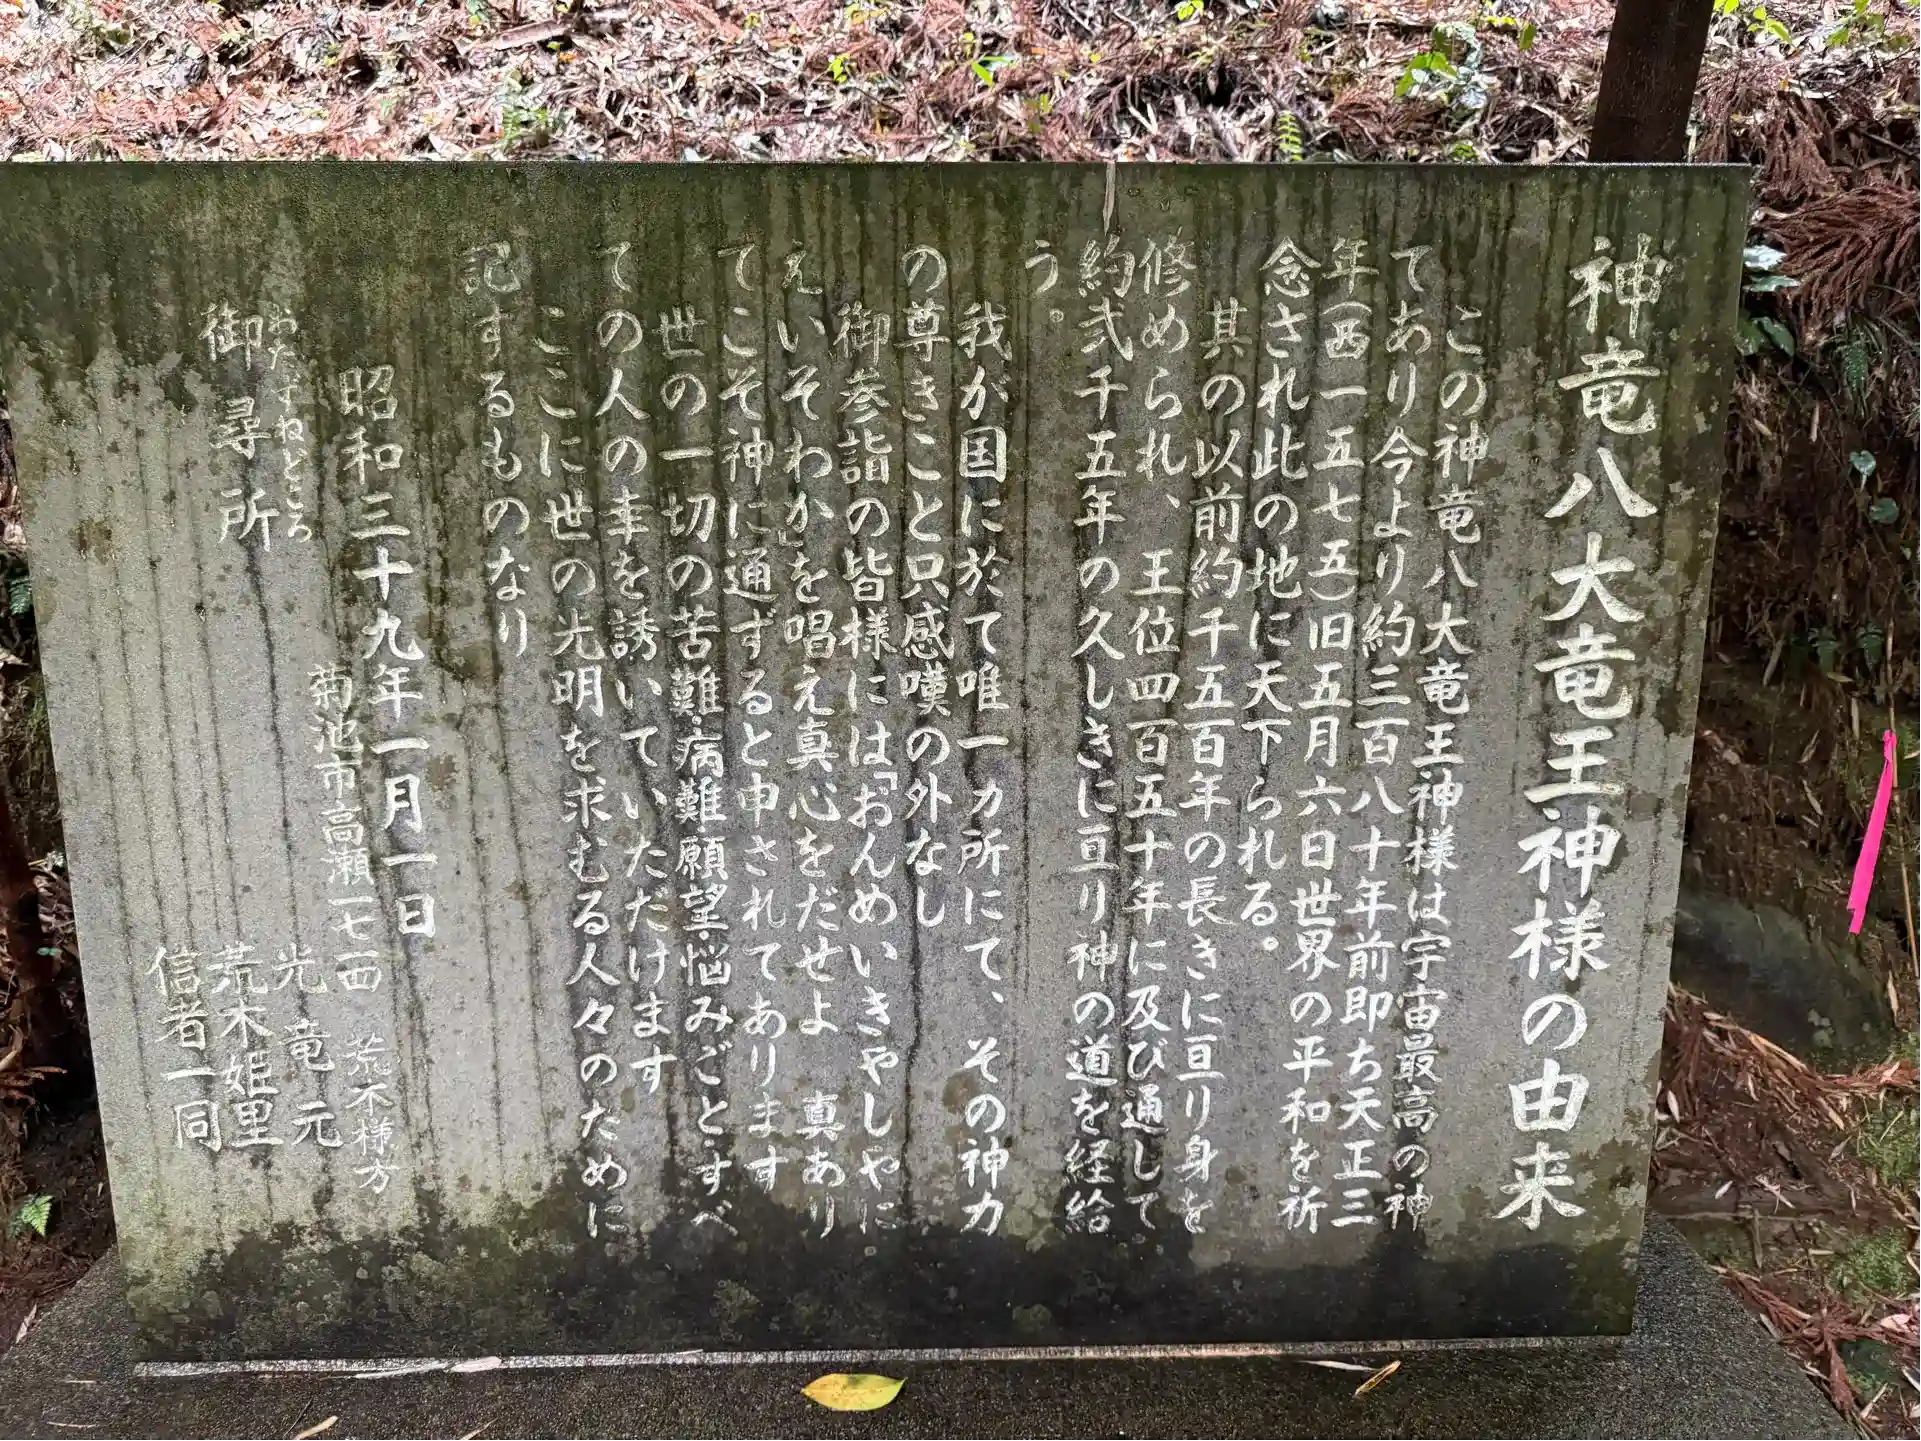 神竜八大竜王神様の由来
この神竜八大竜王神様は宇宙最高の神
であり今より約三百八十年前即ち天正三
年(西一五七五)旧五月六日世界の平和を祈
念され此の地に天下られる。
其の以前約千五百年の長きに亘り身を
修められ、王位四百五十年に及び通して
約弐千五年の久しきに亘り神の道を経給
う。
我が国に於て唯一カ所にて、その神力
の尊きこと只感嘆の外なし
御参詣の皆様には「おんめいきやしやに
えいそわか」を唱え真心をだせよ 真あり
てこそ神に通ずると申されてあります
世の一切の苦難・病難・願望・悩みごと・すべ
ての人の幸を誘いていただけます
ここに世の光明を求むる人々のために
記するものなり
昭和三十九年一月一日
菊池市高瀬一七西 荒木様方
おたずねどころ
御尋所
光竜元
荒木姫里
信者一同